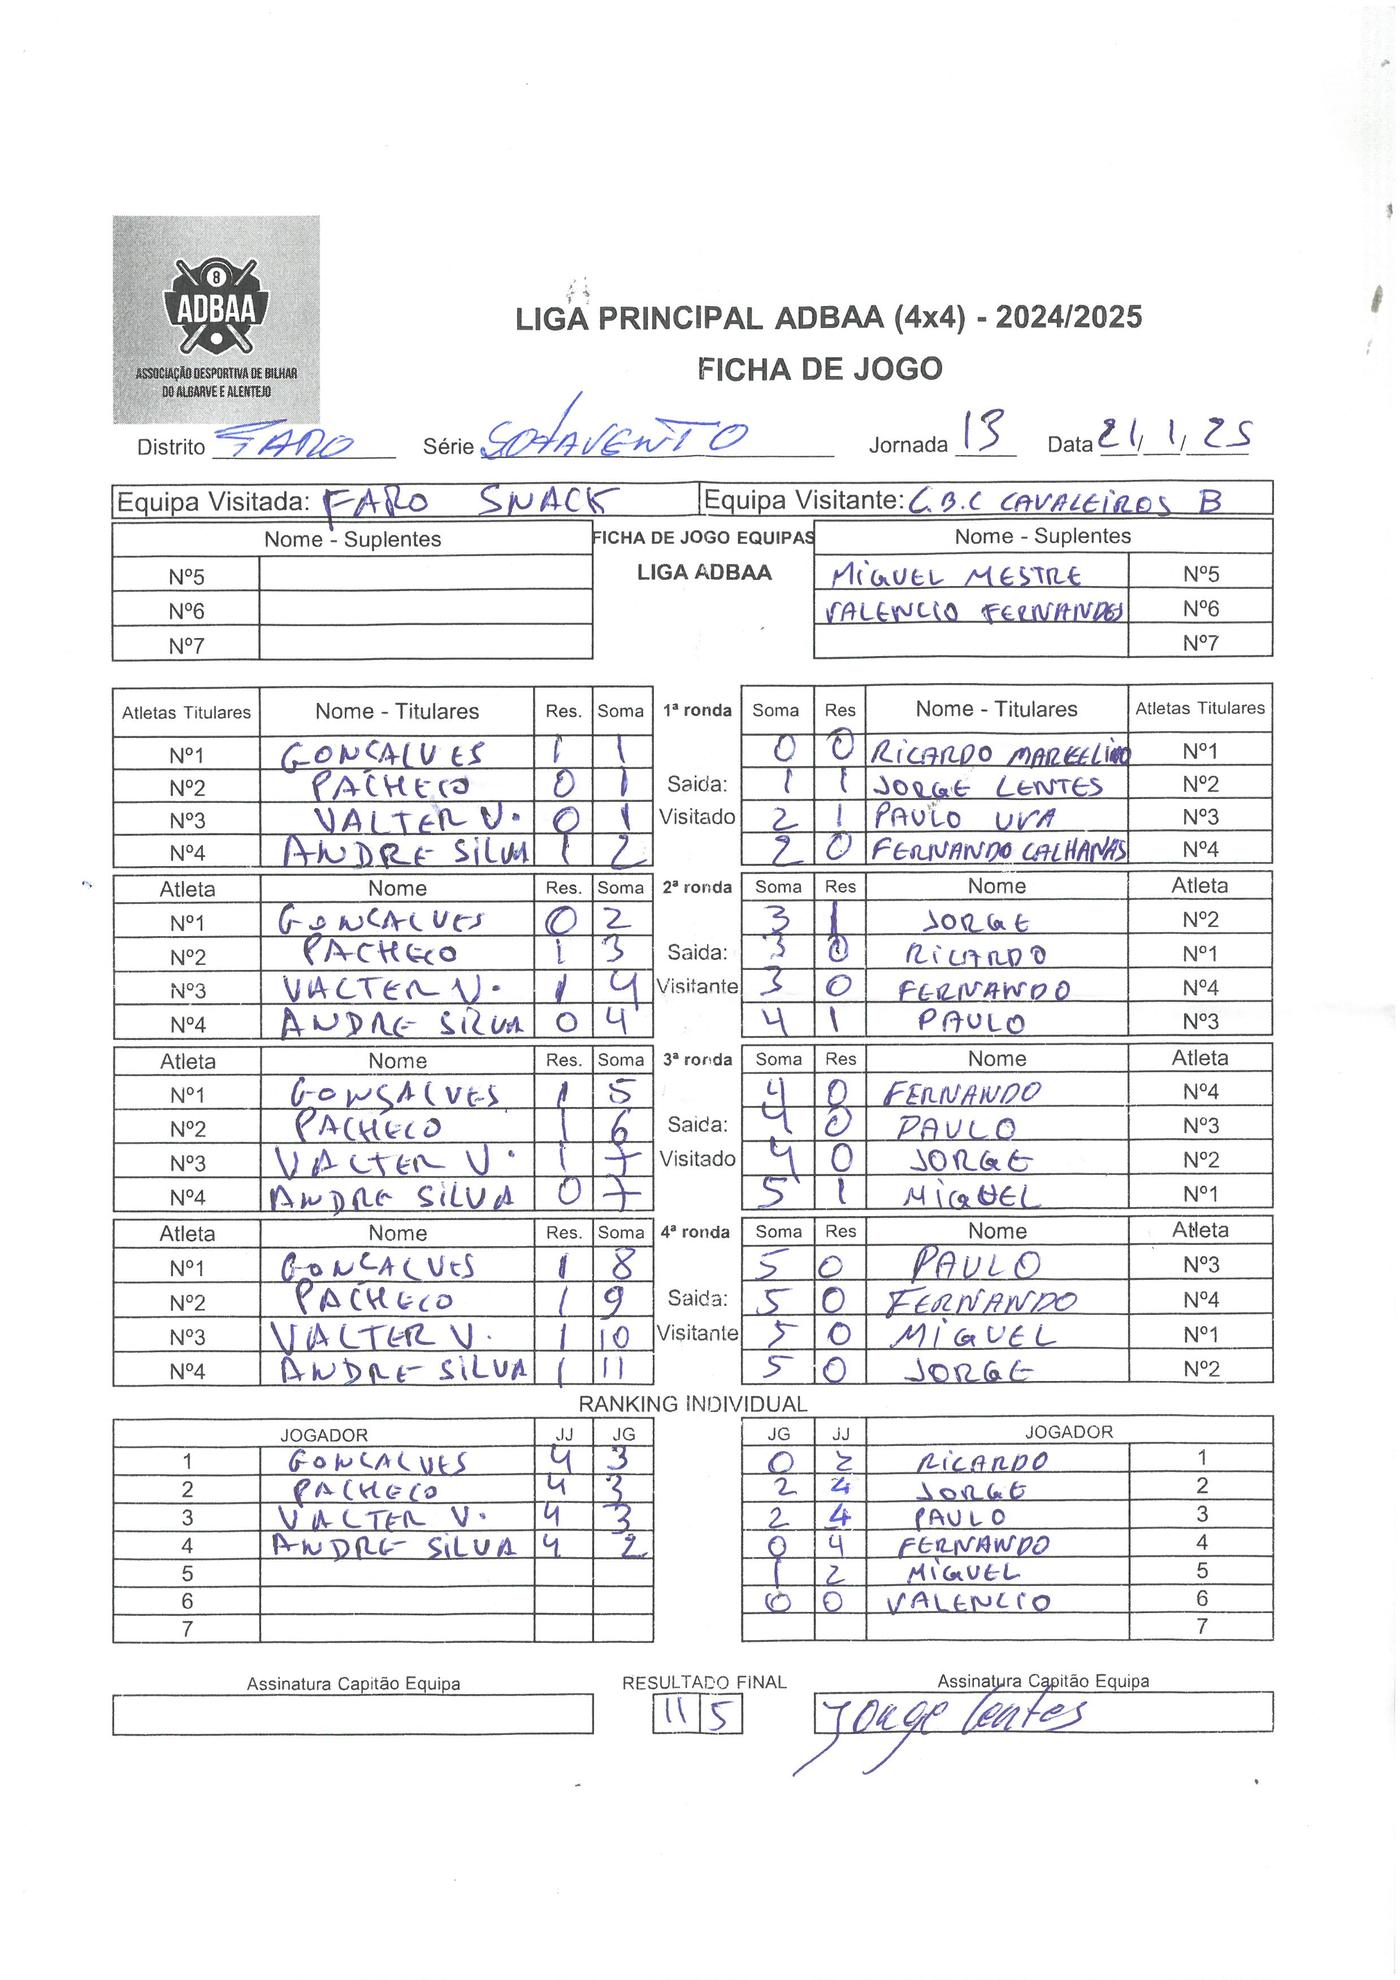 8
ADBAA
ASSOCIAÇÃO DESPORTIVA DE BILHAR
DO ALGARVE E ALENTEJO
LIGA PRINCIPAL ADBAA (4x4) - 2024/2025
FICHA DE JOGO
Distrito FARO Série SOTAVENTO Jornada 13 Data 21/1/25
Equipa Visitada: FARO SNACK Equipa Visitante: C.B.C CAVALEIROS B
Nome - Suplentes FICHA DE JOGO EQUIPAS Nome - Suplentes
Nº5 LIGA ADBAA MIGUEL MESTRE Nº5
Nº6 VALENCIO FERNANDES Nº6
Nº7 Nº7
Atletas Titulares Nome - Titulares Res. Soma 1ª ronda Soma Res Nome - Titulares Atletas Titulares
Nº1 GONCALVES 1 1 0 0 RICARDO MARCELINO Nº1
Nº2 PACHECO 0 1 Saida: 1 1 JORGE LENTES Nº2
Nº3 VALTER V. 0 1 Visitado 2 1 PAULO UVA Nº3
Nº4 ANDRE SILVA 1 2 2 0 FERNANDO CALHANAS Nº4
Atleta Nome Res. Soma 2ª ronda Soma Res Nome Atleta
Nº1 GONCALVES 0 2 3 1 JORGE Nº2
Nº2 PACHECO 1 3 Saida: 3 0 RICARDO Nº1
Nº3 VALTER V. 1 4 Visitante 3 0 FERNANDO Nº4
Nº4 ANDRE SILVA 0 4 4 1 PAULO Nº3
Atleta Nome Res. Soma 3ª ronda Soma Res Nome Atleta
Nº1 GONÇALVES 1 5 4 0 FERNANDO Nº4
Nº2 PACHECO 1 6 Saida: 4 0 PAULO Nº3
Nº3 VALTER V. 1 7 Visitado 4 0 JORGE Nº2
Nº4 ANDRE SILVA 0 7 5 1 MIGUEL Nº1
Atleta Nome Res. Soma 4ª ronda Soma Res Nome Atleta
Nº1 GONCALVES 1 8 5 0 PAULO Nº3
Nº2 PACHECO 1 9 Saida: 5 0 FERNANDO Nº4
Nº3 VALTER V. 1 10 Visitante 5 0 MIGUEL Nº1
Nº4 ANDRE SILVA 1 11 5 0 JORGE Nº2
RANKING INDIVIDUAL
JOGADOR JJ JG JG JJ JOGADOR
1 GONCALVES 4 3 0 2 RICARDO 1
2 PACHECO 4 3 2 4 JORGE 2
3 VALTER V. 4 3 2 4 PAULO 3
4 ANDRE SILVA 4 2 0 4 FERNANDO 4
5 1 2 MIGUEL 5
6 0 0 VALENCIO 6
7 7
Assinatura Capitão Equipa RESULTADO FINAL Assinatura Capitão Equipa
11 5 Jorge Lentes